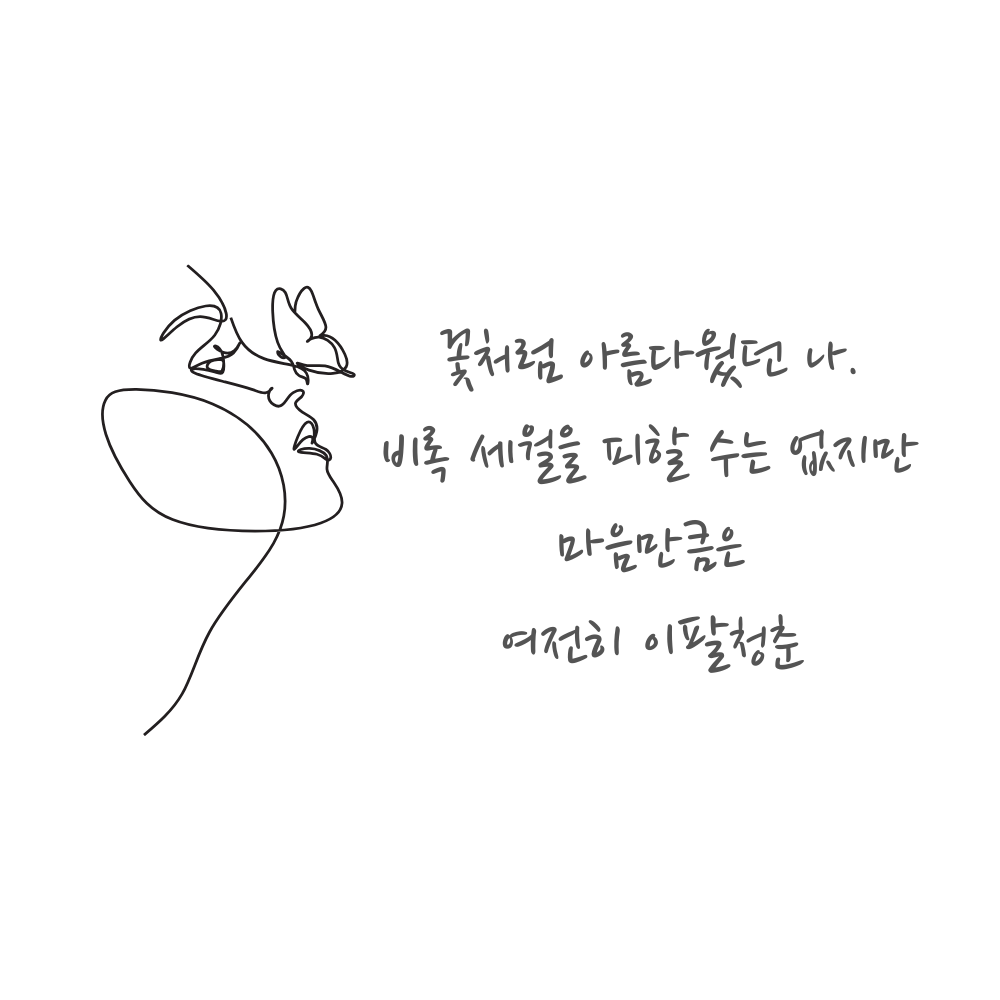 꽃처럼 아름다웠던 나.
비록 세월을 피할 수는 없지만
마음만큼은
여전히 이팔청춘